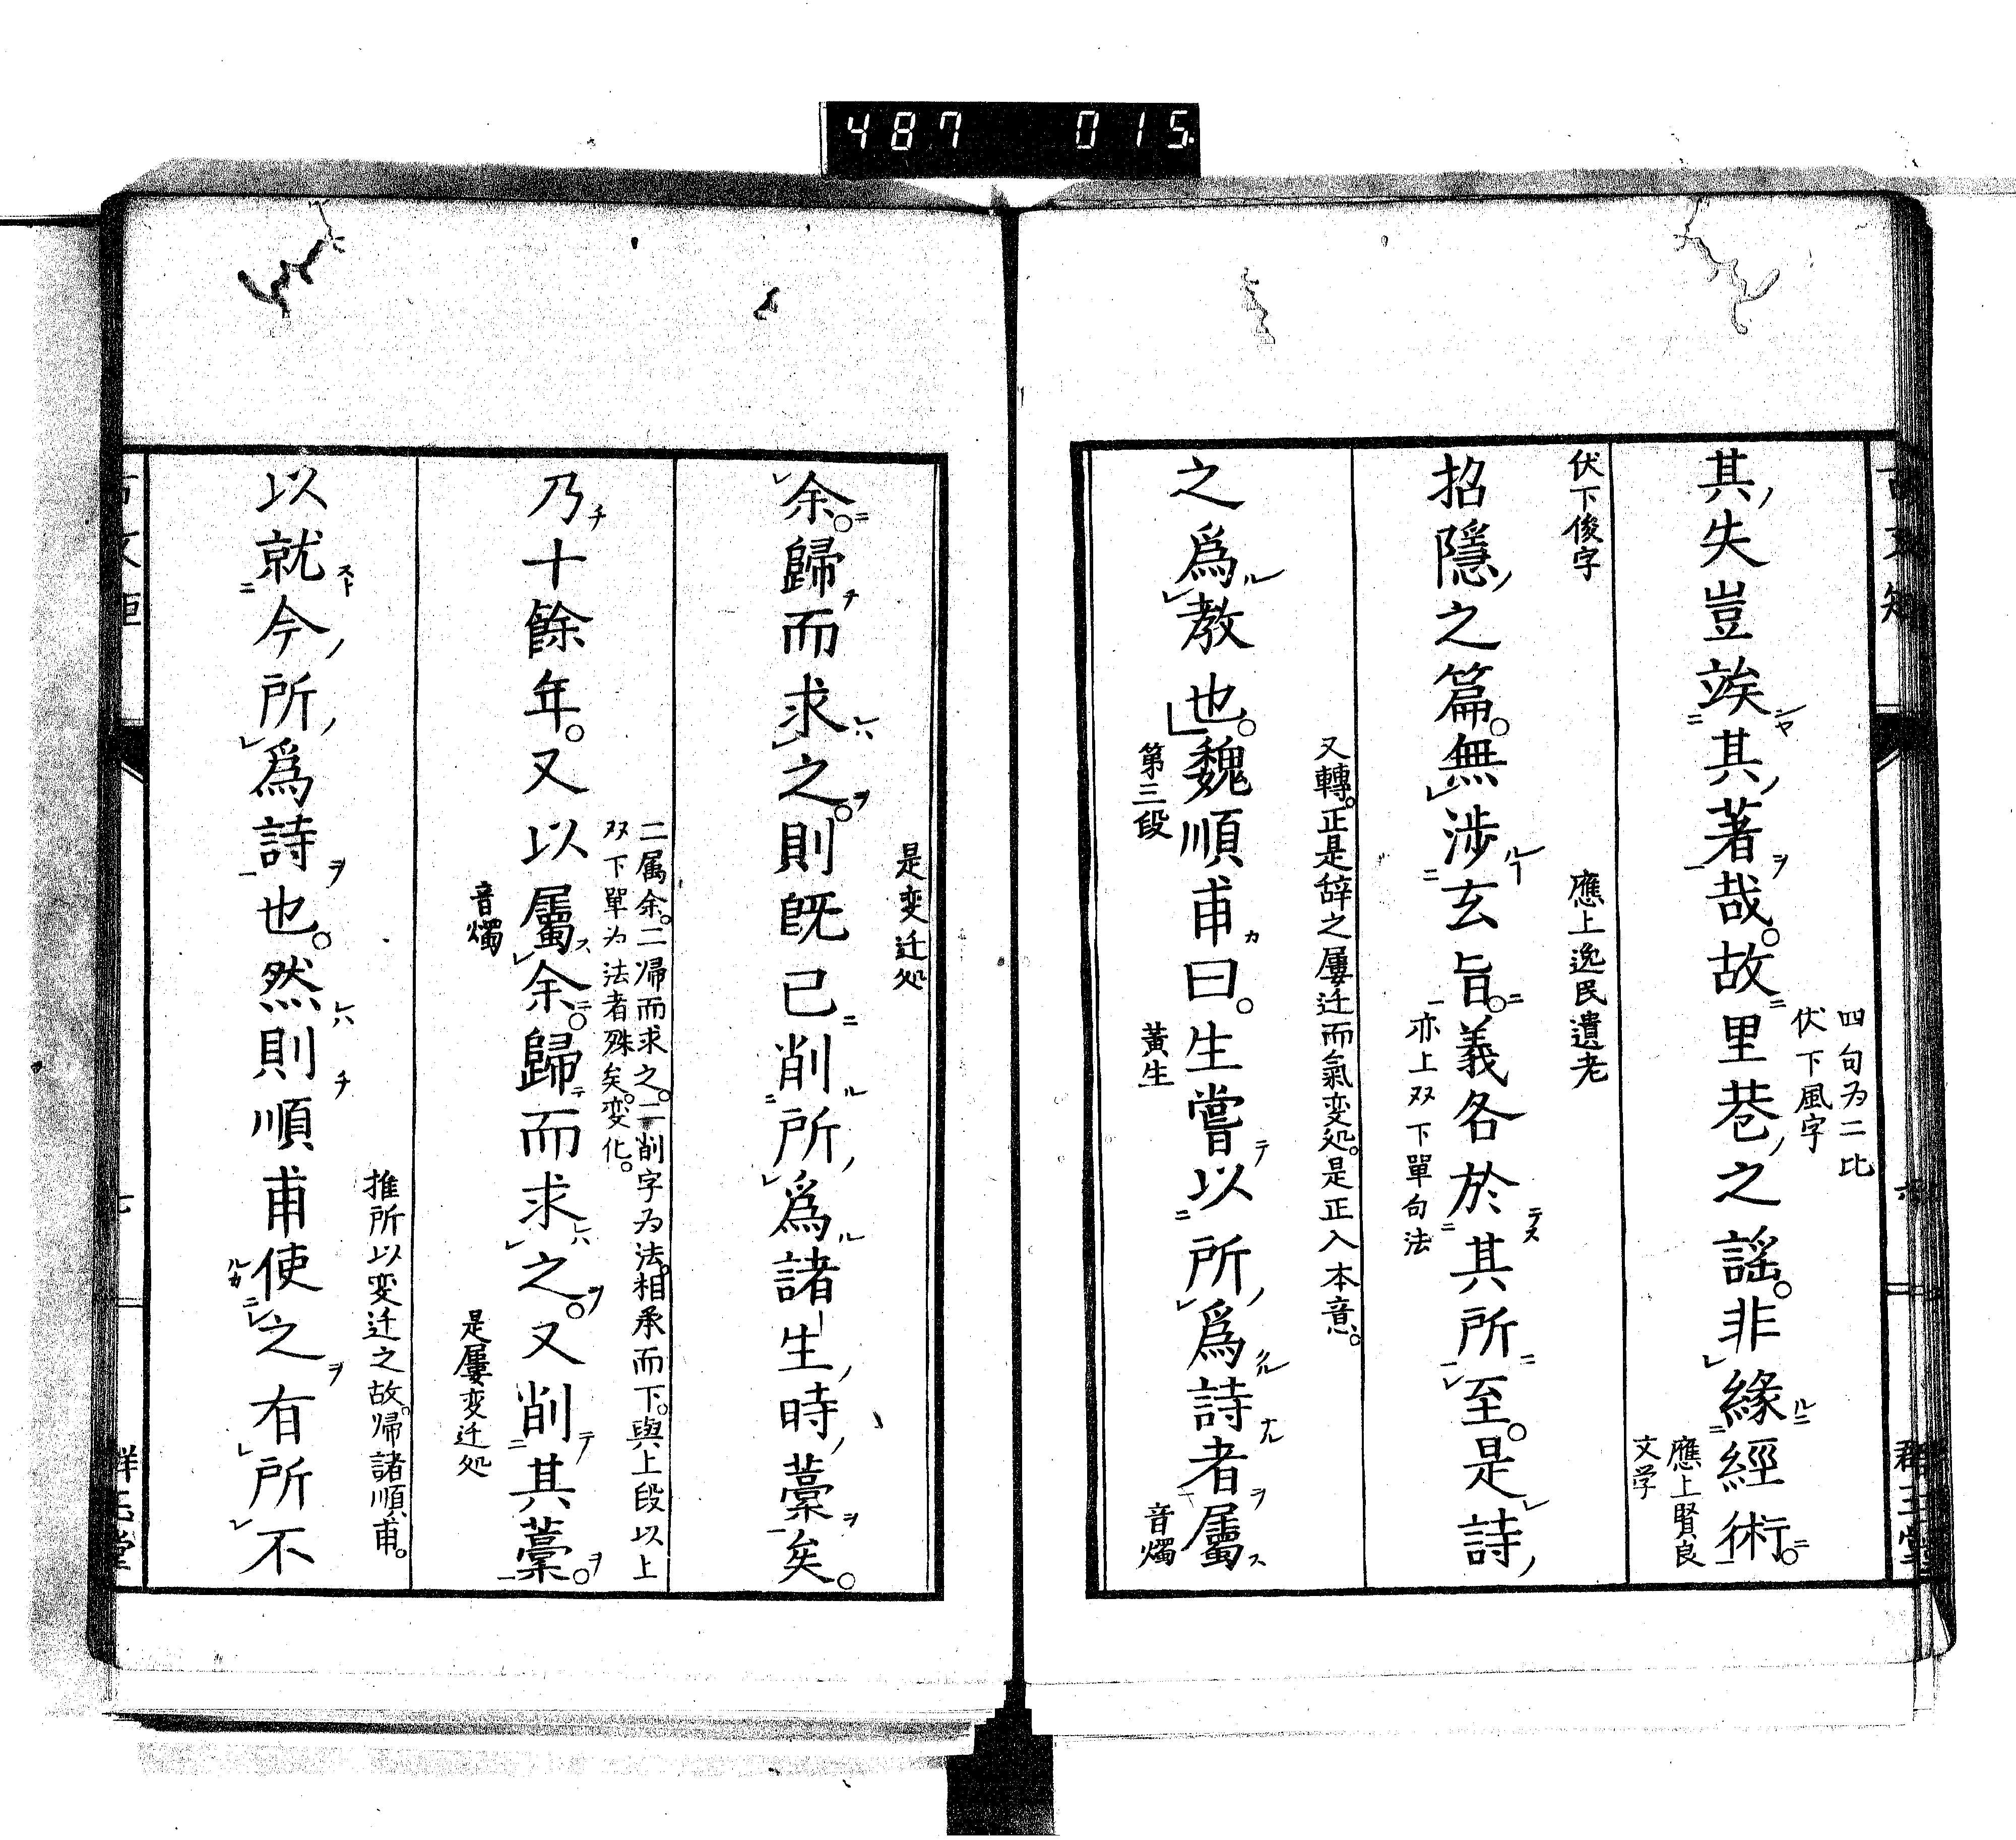 487 015
四句为二比
伏下風字
其失豈竢其著哉。故里巷之謡。非緣經術。
應上賢良
文学
伏下俊字
應上逸民遺老
招隱之篇。無涉玄旨。義各於其所至。是詩
亦上双下單句法
又轉。正是辞之屢迁而氣变処。是正入本意。
之爲教也。魏順甫曰。生嘗以所爲詩者屬
第三段
黃生
音燭
群玉堂
是变迁処
余。歸而求之。則既已削所爲諸生時藁矣。
二属余。二帰而求之。二削字为法。相承而下。與上段以上
双下單为法者殊矣。变化。
乃十餘年。又以屬余。歸而求之。又削其藁。
音燭
是屢变迁処
推所以变迁之故。帰諸順甫。
以就今所爲詩也。然則順甫使之有所不
群玉堂